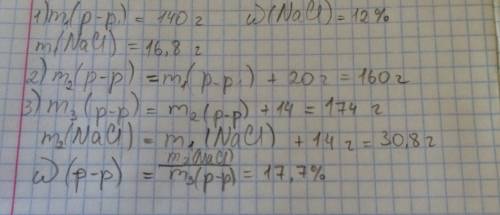 1) m₁(р-р) = 140 г ω(NaCl) = 12%
m(NaCl) = 16,8 г
2) m₂(р-р) = m₁(р-р) + 20 г = 160 г
3) m₃(р-р) = m₂(р-р) + 14 = 174 г
m₂(NaCl) = m₁(NaCl) + 14 г = 30,8 г
ω(р-р) = m₂(NaCl) / m₃(р-р) = 17,7%